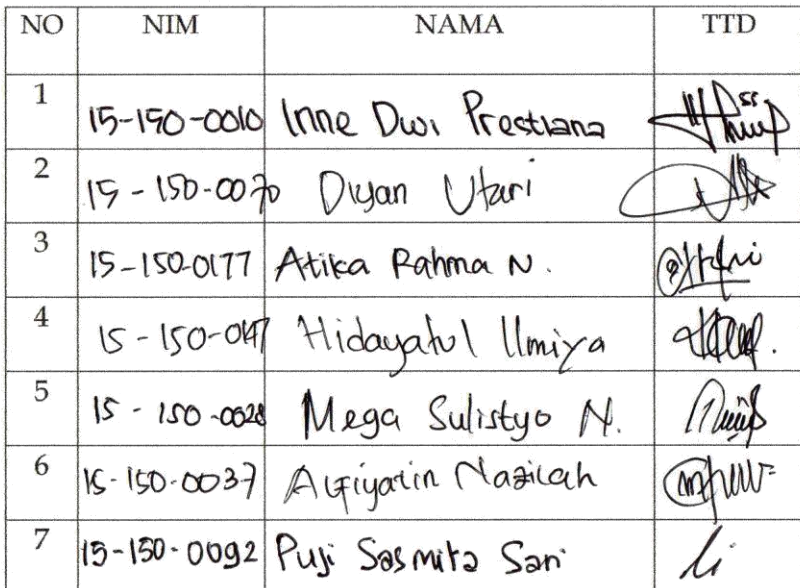 NO NIM NAMA TTD
1 15-150-0010 Inne Dwi Prestiana
2 15-150-0070 Diyan Utari
3 15-150-0177 Atika Rahma N.
4 15-150-0147 Hidayatul Ilmiya
5 15-150-0028 Mega Sulistyo N.
6 15-150-0037 Alfiyatin Nazilah
7 15-150-0092 Puji Sasmita Sari